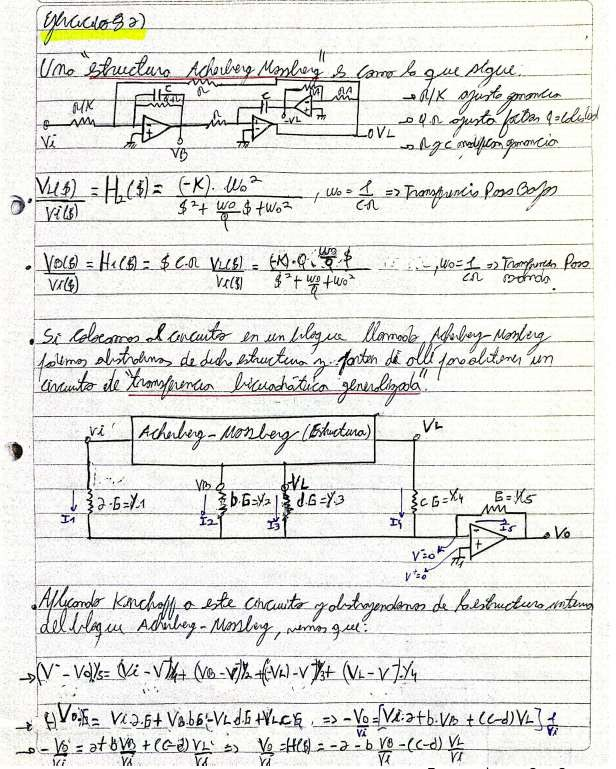 Ejercicio 3 a)
Una "estructura Ackerberg Mossberg" es como la que sigue:
R/K
Vi
R
C
Q.R
VB
R
C
-VL
VL
→ R/K ajusta ganancia
→ Q.R ajusta factor Q = calidad
→ R y C modifican ganancia
VL($)/Vi($) = H2($) = (-K). ωo² / $² + ωo/Q $ + ωo² , ωo = 1/C.R => Transferencia Paso Bajos
• VB($)/Vi($) = H1($) = $ C.R VL($)/Vi($) = (-K).Q.ωo/Q.$ / $² + ωo/Q + ωo² , ωo = 1/CR => Transferencia Paso banda.
• Si colocamos al circuito en un bloque llamado Ackerberg-Mossberg
podemos abstraernos de dicha estructura y partir de allí para obtener un
circuito de "transferencia bicuadrática generalizada".
Vi
Ackerberg-Mossberg (Estructura)
VL
VB
-VL
a.G=Y1
b.G=Y2
d.G=Y3
c G=Y4
G=Y5
I1
I2
I3
I4
I5
V⁻=0
V⁺=0
Vo
• Aplicando Kirchoff a este circuito y abstrayendonos de la estructura interna
del bloque Ackerberg-Mossberg, vemos que:
→ (V⁻ - Vo)Y5 = (Vi - V⁻)Y1 + (VB - V⁻)Y2 + (-VL) - V⁻)Y3 + (VL - V⁻).Y4
→ (-)Vo.G = Vi a.G + VB.bG - VL d.G + VL c G => -Vo/Vi = [Vi.a + b.VB + (c-d) VL] 1/Vi
→ - Vo/Vi = a + b VB/Vi + (c-d) VL/Vi => Vo/Vi = H($) = -a - b VB/Vi - (c-d) VL/Vi